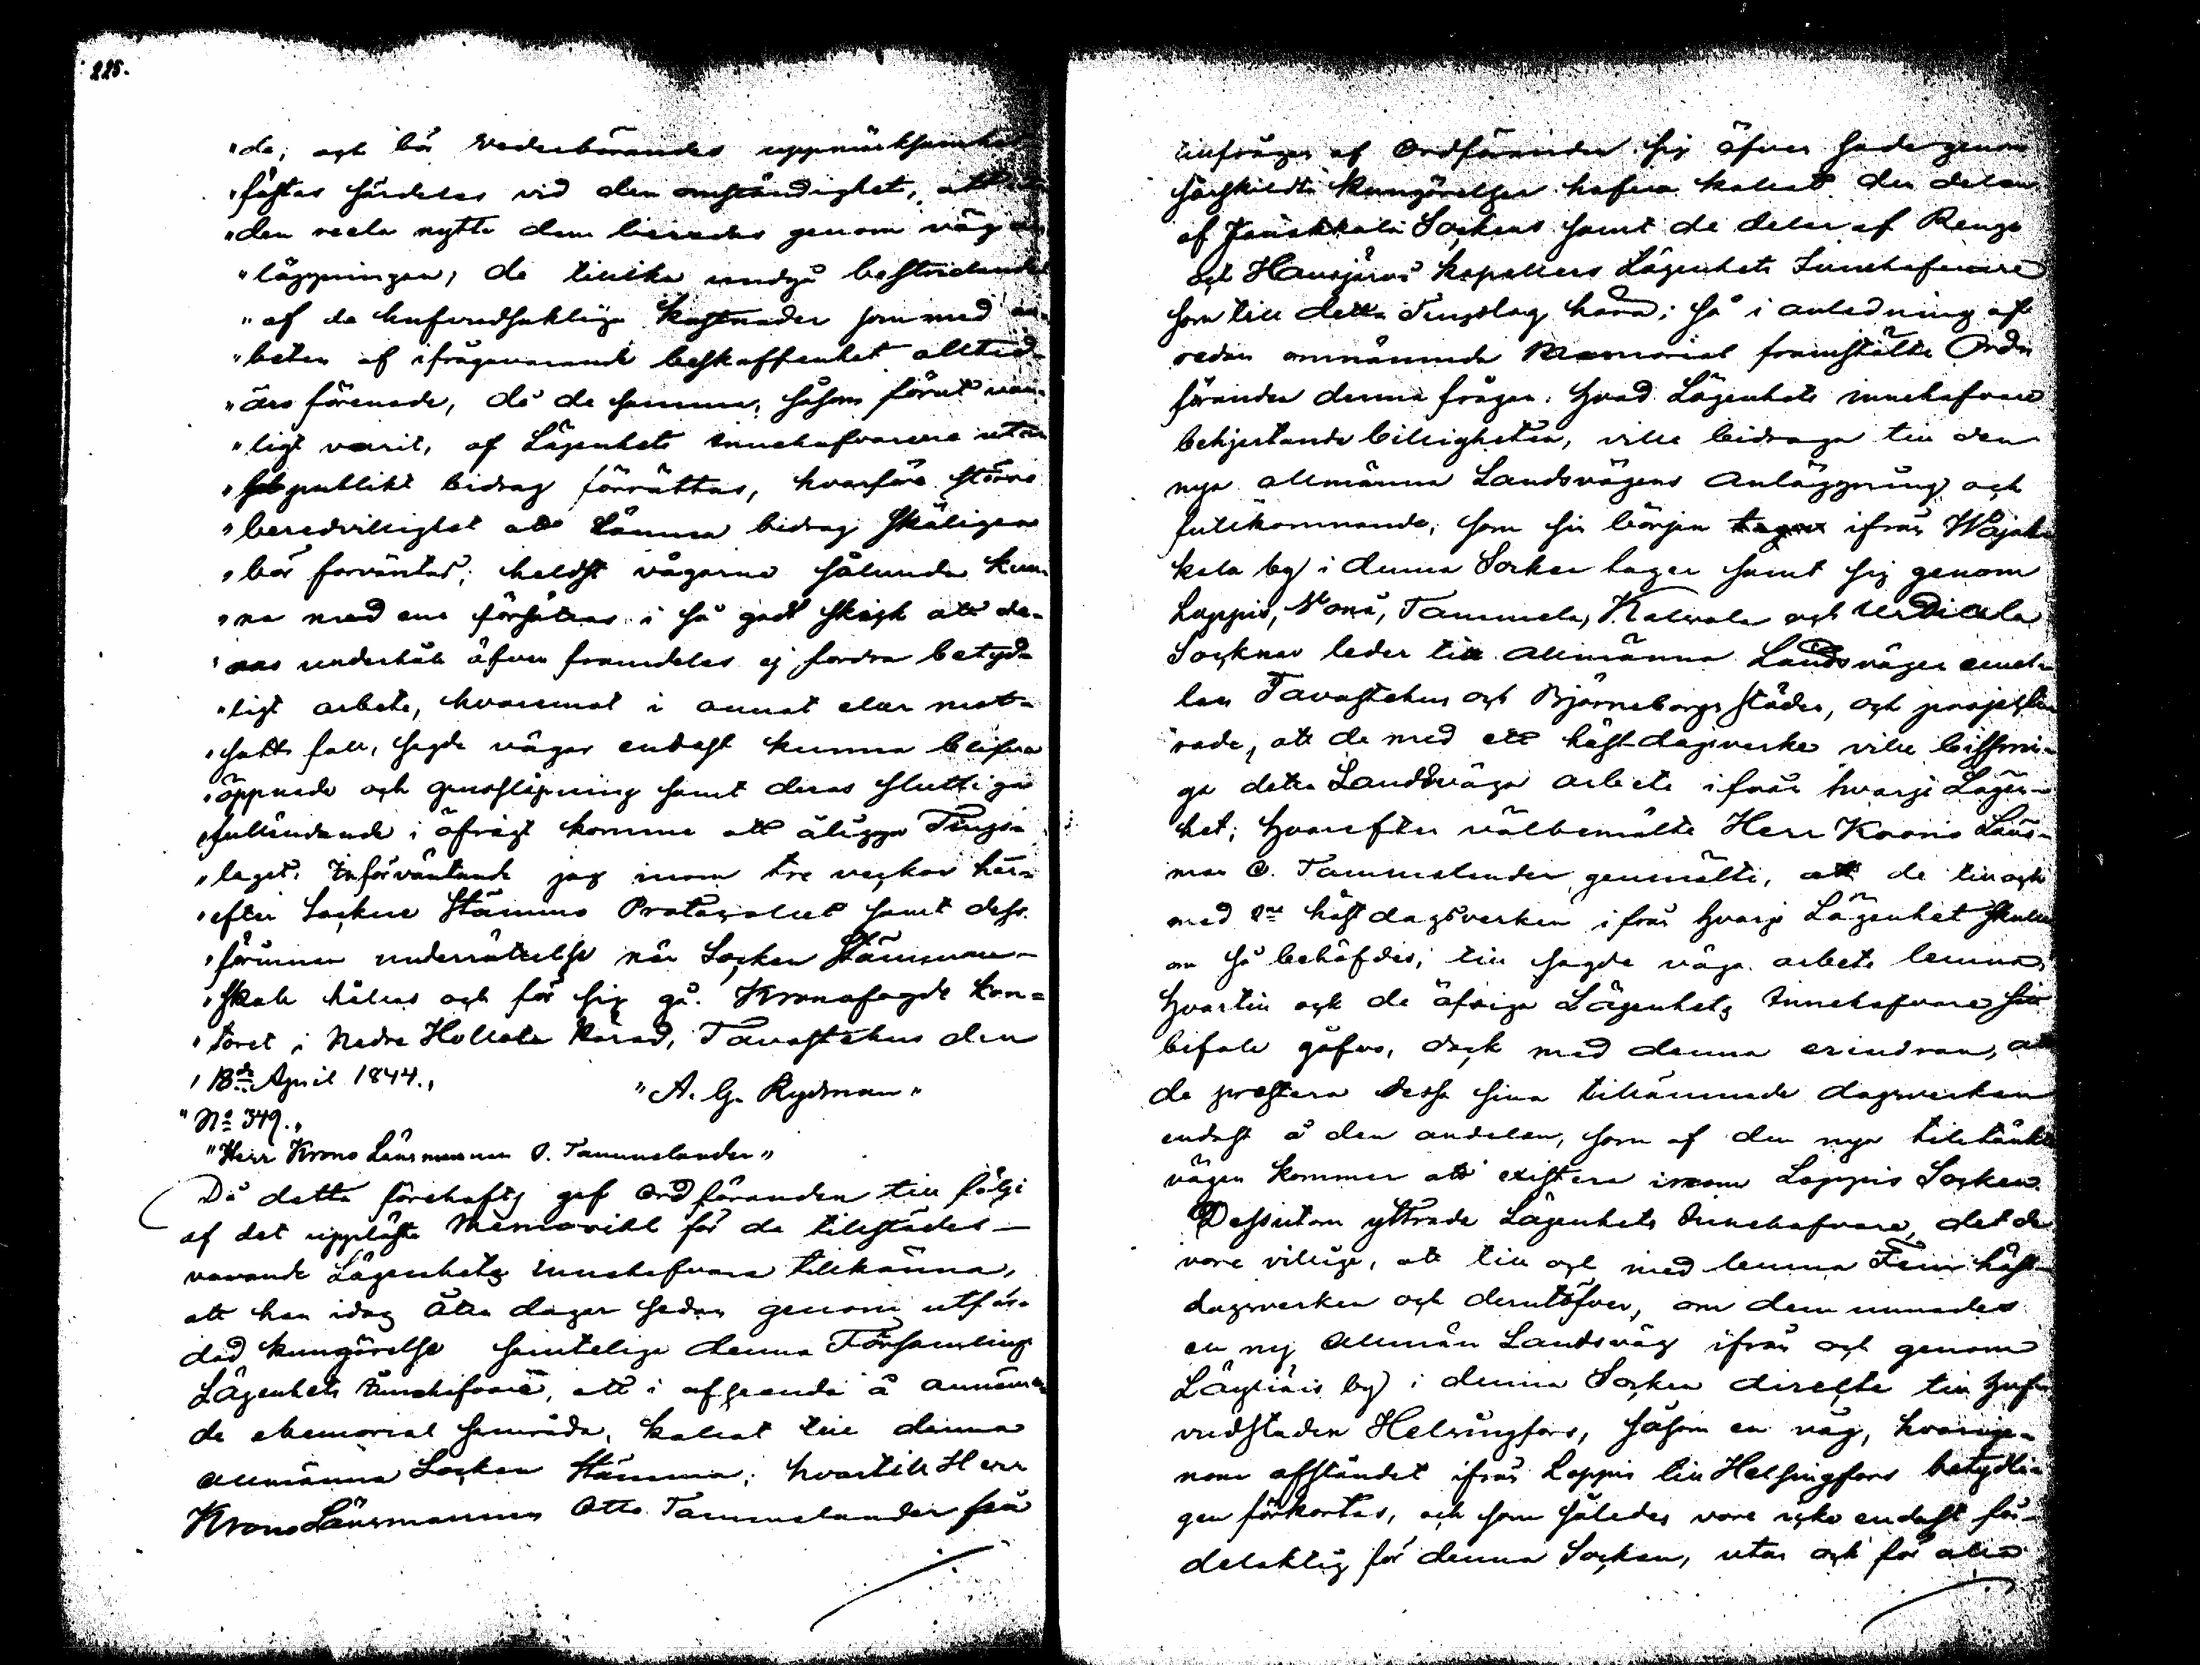 225.
"de; och bör vederbörandes uppmärksamhet
"fästas särdeles vid den omständighet, att
"den reela nytta dem beredes genom väg an
"läggningen, de tillika undgå bestridandet
"af de hufvudsakliga kostnader som med ar-
"beten af ifrågavarande beskaffenhet alltid
"äro förenade, då de samma, såsom förut van-
"ligt varit, af Lägenhets innehafvarene utan
"publikt bidrag förrättas, hvarföre större
"beredvillighet att lämna bidrag skäligen
"bör förväntas; heldst vägarne sålunda kun-
"na med ens försättas i så godt skick att de-
"ras underhåll äfven framdeles ej fordra betyd-
"ligt arbete, hvaremot i annat eller mot-
"satt fall, sagde vägar endast kunna blifva
"öppnade och grusslipning samt deras sluttiga
"fulländande i öfrigt komme att åligga Tings-
"laget. Införväntande jag inom tre veckor här-
"efter Socken Stämmo Protocollet samt dess-
"förinnan underrättelse när Socken Stämman
"skall hållas och för sig gå. Kronofogde Kon-
"toret i Nedre Hollola Härad, Tavastehus den
"18de April 1844.,
"A. G. Rydman"
"No 349.,
"Herr Krono Länsmannen O. Tammelander"
Då detta förehafts gaf Ordföranden till följe
af det upplästa Memorial för de tillstädes-
varande Lägenhets innehafvare tillkänna,
att han idag åtta dagar sedan genom utfär-
dad kungörelse samtelige denna Församlings
Lägenhets Innehafvare, att i afseende å annämn
de Memorial samråda, kallat till denna
Allmänna Socken Stämma; hvartill Herr
Krono Länsmannen Otto Tammelander på
tillfrågan af Ordföranden sig äfven hade genom
särskildta kungörelser hafva kallat den delen
af Janakkala Sockens samt de delar af Renge
och Hausjärvi kapellers Lägenhets Innehafvare
som till detta Tingslag höra; Så i anledning af
redan omnämnda Memorial framställte Ord-
föranden denna frågan: hvad Lägenhets innehafvare
behjertande billigheten, ville bidraga till den
nya allmänna Landsvägens Anläggning och
fullkomnande, som sin början tagen ifrån Wojak
kala by i denna Socken tager samt sig genom
Loppis, Somero, Tammela, Kalvola och Urdiala
Socknar leder till Allmänna Landsvägen emel-
lan Tavastehus och Björneborgs städer, och projekte
rade, att de med ett häst-dagsverke ville bispri-
ga detta Landsvägs arbete ifrån hvarje Lägen-
het; hvarefter välbemälte Herr Krono Läns-
man O. Tammelander genmälte, att de till och
med 2ne häst dagsverken ifrån hvarje Lägenhet skulle
om så behöfdes, till sagde vägs arbete lemna,
hvartill och de öfriga Lägenhets Innehafvare sitt
bifall gåfvo, dock med denna erindran, att
de prestera dessa sina tillämnade dagsverken
endast å den andelen, som af den nya tilltänkta
vägen kommer att existera inom Loppis Socken.
Dessutom yttrade Lägenhets Innehafvare, det de
vore villige, att till och med lemna Fem häst-
dagsverken och derutöfver, om dem unnades
en ny Allmän Landsväg ifrån och genom
Läyliäis by i denna Socken direkte till huf-
vudstaden Helsingfors, såsom en väg, hvarige-
nom afståndet ifrån Loppis till Helsingfors betydli-
gen förkortas, och som således vore icke endast för-
delaktig för denna Socken, utan och för alla